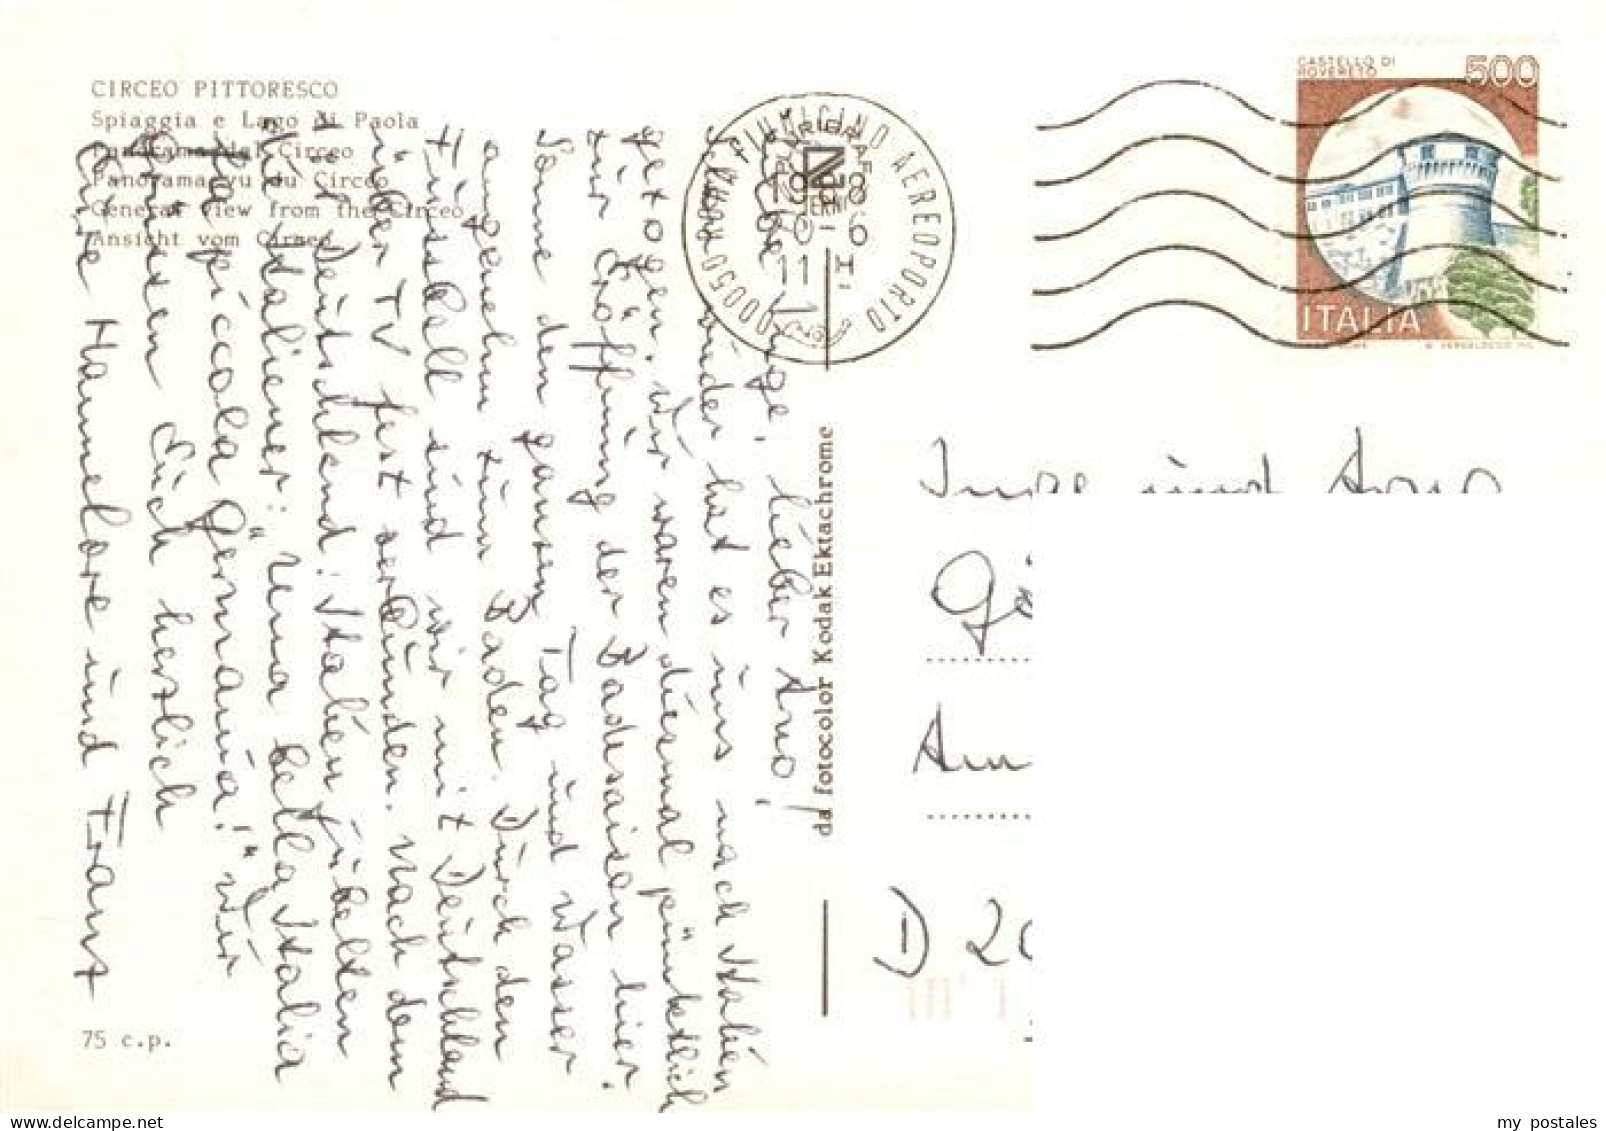 CIRCEO PITTORESCO
Spiaggia e Lago di Paola
Panorama dal Circeo
Panorama vu du Circeo
General view from the Circeo
Ansicht vom Circeo
Liebe Inge, lieber Arno!
wieder hat es uns nach Italien
gezogen. Wir waren diesmal pünktlich
zur Eröffnung der Badesaison hier.
Sonne den ganzen Tag und Wasser
angenehm zum Baden. Durch den
Fussball sind wir mit Deutschland
über TV fest verbunden. Nach dem
Deutschland: Italien jubelten
die Italiener: "Una bella Italia
una piccola Germania!" Wir
grüssen Euch herzlich
Eure Hannelore und Franz
75 c.p.
da fotocolor Kodak Ektachrome
00050 ROMA FIUMICINO AEROPORTO
11
CASTELLO DI
ROVERETO
500
ITALIA
Inge und Arno
Am
D 20
my postales